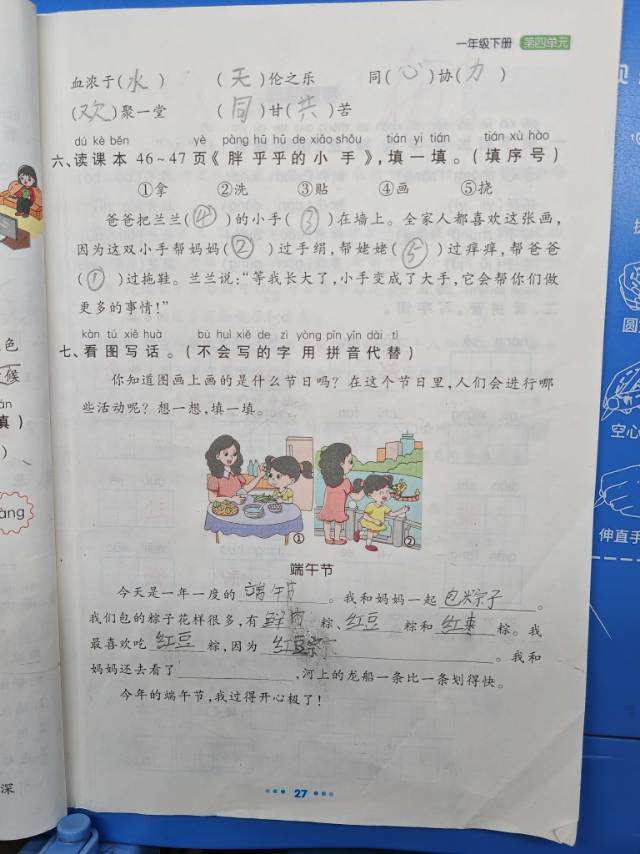 一年级下册 第四单元
血浓于(水) (天)伦之乐 同(心)协(力)
(欢)聚一堂 (同)甘(共)苦
dú kè běn yè pàng hū hū de xiǎo shǒu tián yi tián tián xù hào
六、读课本46~47页《胖乎乎的小手》,填一填。(填序号)
①拿 ②洗 ③贴 ④画 ⑤挠
爸爸把兰兰(④)的小手(③)在墙上。全家人都喜欢这张画,
因为这双小手帮妈妈(②)过手绢,帮姥姥(⑤)过痒痒,帮爸爸
(①)过拖鞋。兰兰说:“等我长大了,小手变成了大手,它会帮你们做
更多的事情!”
kàn tú xiě huà bú huì xiě de zì yòng pīn yīn dài tì
七、看图写话。(不会写的字用拼音代替)
你知道图画上画的是什么节日吗?在这个节日里,人们会进行哪
些活动呢?想一想,填一填。
① ②
端午节
今天是一年一度的端午节。我和妈妈一起包粽子。
我们包的粽子花样很多,有鲜肉粽、红豆粽和红枣粽。我
最喜欢吃红豆粽,因为红豆。我和
妈妈还去看了,河上的龙船一条比一条划得快。
今年的端午节,我过得开心极了!
27
色
候
填)
)
àng
深
圆
空心
伸直手